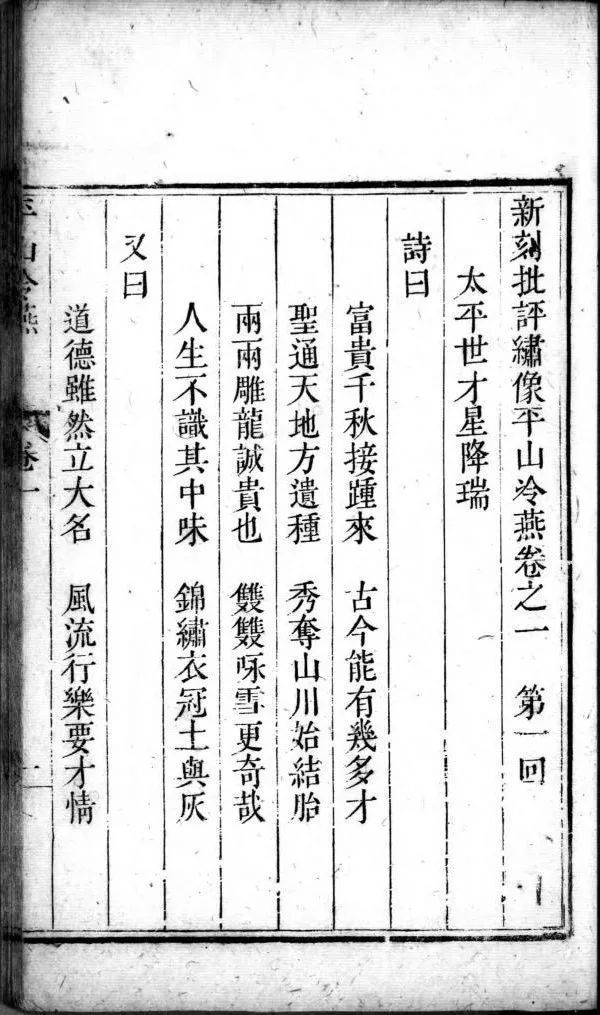 新刻批評繡像平山冷燕卷之一　第一回
太平世才星降瑞
詩曰
富貴千秋接踵來　古今能有幾多才
聖通天地方遺種　秀奪山川始結胎
兩兩雕龍誠貴也　雙雙咏雪更奇哉
人生不識其中味　錦繡衣冠土與灰
又曰
道德雖然立大名　風流行樂要才情
平山冷燕　卷一　一